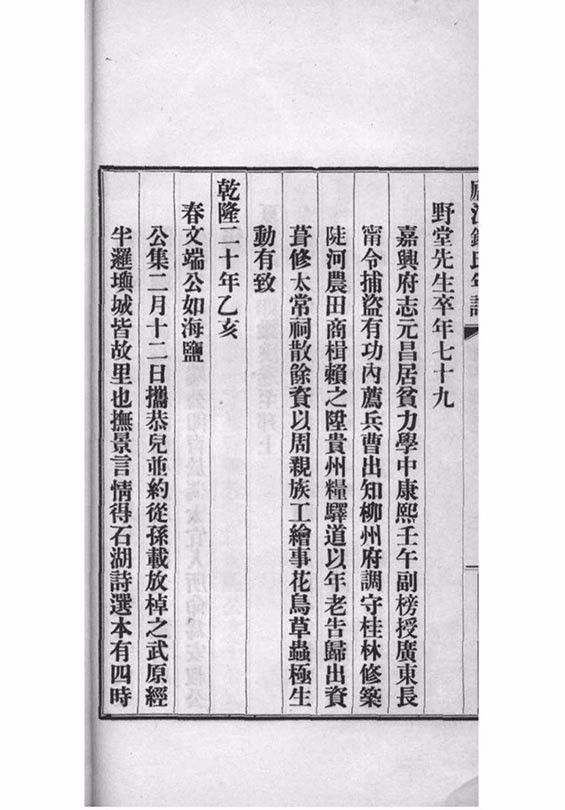 野堂先生卒年七十九
嘉興府志元昌居貧力學中康熙壬午副榜授廣東長
甯令捕盜有功內薦兵曹出知柳州府調守桂林修築
陡河農田商楫賴之陞貴州糧驛道以年老告歸出資
葺修太常祠散餘資以周親族工繪事花鳥草蟲極生
動有致
乾隆二十年乙亥
春文端公如海鹽
公集二月十二日攜恭兒並約從孫載放棹之武原經
半邏墺城皆故里也撫景言情得石湖詩選本有四時